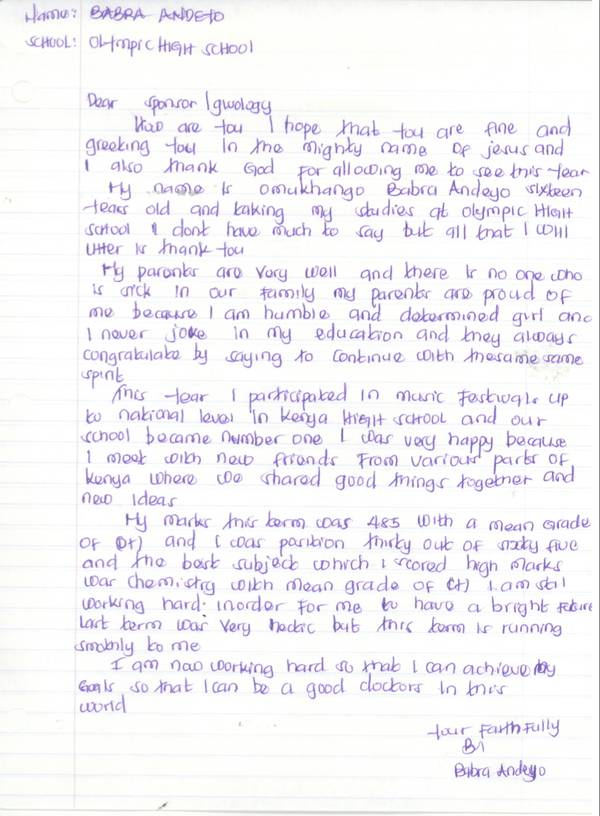 Name: BABRA ANDEYO
SCHOOL: OLYMPIC HIGH SCHOOL
Dear sponsor Igwology
How are you I hope that you are fine and
greeking you In the mighty name of jesus and
I also thank God for allowing me to see this year
My name is omukhango Babra Andeyo sixteen
years old and taking my studies at olympic High
school I dont have much to say but all that I will
utter is thank you
My parents are very well and there is no one who
is sick in our family my parents are proud of
me because I am humble and determined girl and
I never joke in my education and they always
congratulate by saying to continue with thesame same
spirit
This year I participated in music festivals up
to national level in Kenya High school and our
school became number one I was very happy because
I meet with new friends from various parts of
Kenya where we shared good things together and
new ideas
My marks this term was 485 with a mean grade
of (D+) and I was position thirty out of sixty five
and the best subject which I scored high marks
was chemistry with mean grade of (+) I am still
working hard inorder for me to have a bright future
last term was very hectic but this term is running
smobhly to me
I am now working hard so that I can achieve my
Goals so that I can be a good doctors in this
world
your Faithfully
Babra Andeyo